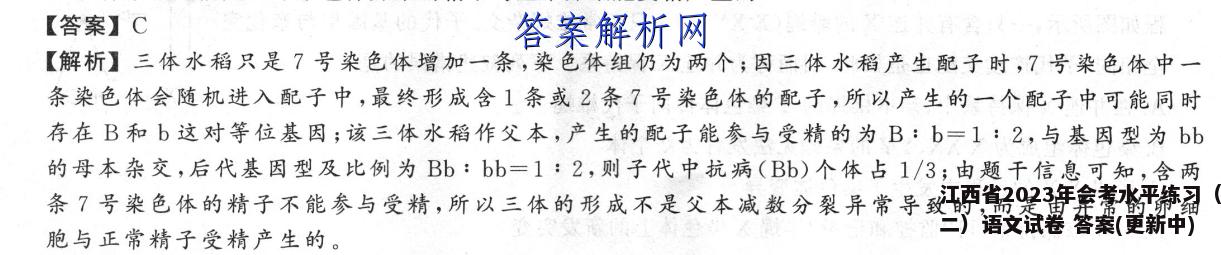 【答案】C
答案解析网
【解析】三体水稻只是7号染色体增加一条,染色体组仍为两个;因三体水稻产生配子时,7号染色体中一
条染色体会随机进入配子中,最终形成含1条或2条7号染色体的配子,所以产生的一个配子中可能同时
存在B和b这对等位基因;该三体水稻作父本,产生的配子能参与受精的为B∶b=1∶2,与基因型为bb
的母本杂交,后代基因型及比例为Bb∶bb=1∶2,则子代中抗病(Bb)个体占1/3;由题干信息可知,含两
条7号染色体的精子不能参与受精,所以三体的形成不是父本减数分裂异常导致的,而是由异常的卵细
胞与正常精子受精产生的。
江西省2023年会考水平练习(
二)语文试卷 答案(更新中)